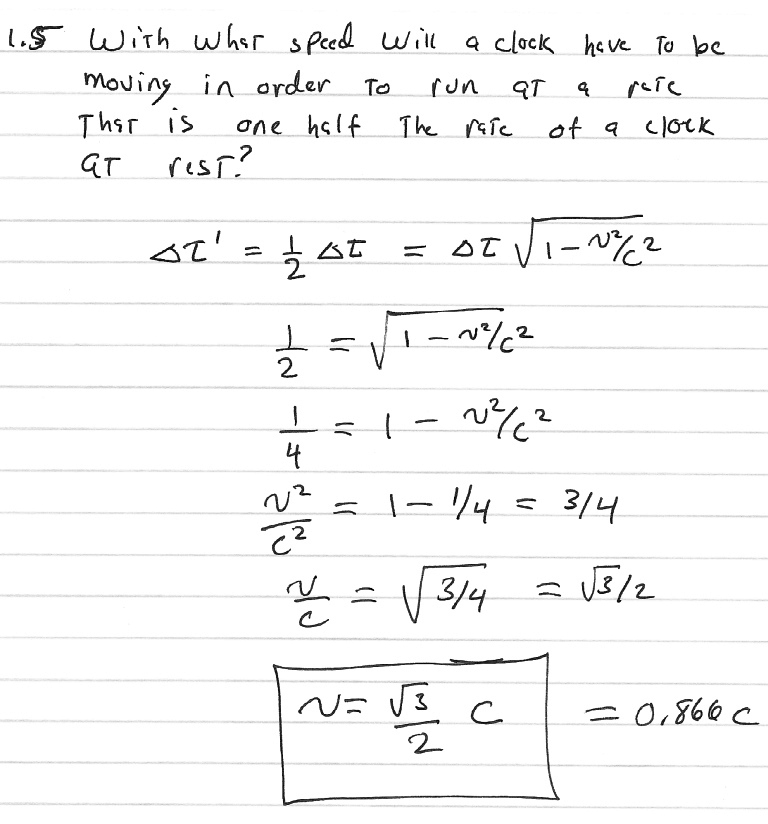 1.5 With what speed will a clock have to be
moving in order to run at a rate
that is one half the rate of a clock
at rest?
Δτ' = 1/2 Δτ = Δτ √(1 - v²/c²)
1/2 = √(1 - v²/c²)
1/4 = 1 - v²/c²
v²/c² = 1 - 1/4 = 3/4
v/c = √(3/4) = √3/2
v = √3/2 c = 0.866 c